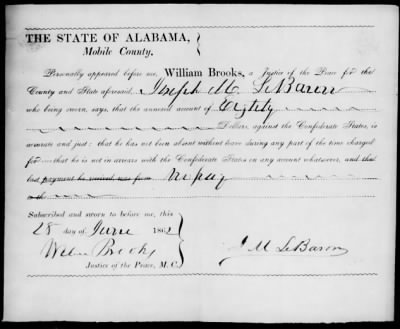 THE STATE OF ALABAMA,
Mobile County.
Personally appeared before me, William Brooks, a Justice of the Peace for the
County and State aforesaid, Joseph M LeBaron
who being sworn, says, that the annexed account of Eighty
Dollars, against the Confederate States, is
accurate and just: that he has not been absent without leave during any part of the time charged
for that he is not in arrears with the Confederate States on any account whatsoever, and that
last payment he received, was from no pay
to the
Subscribed and sworn to before me, this
28 day of June 1862
Wm Brooks
J M LeBaron
Justice of the Peace, M. C.